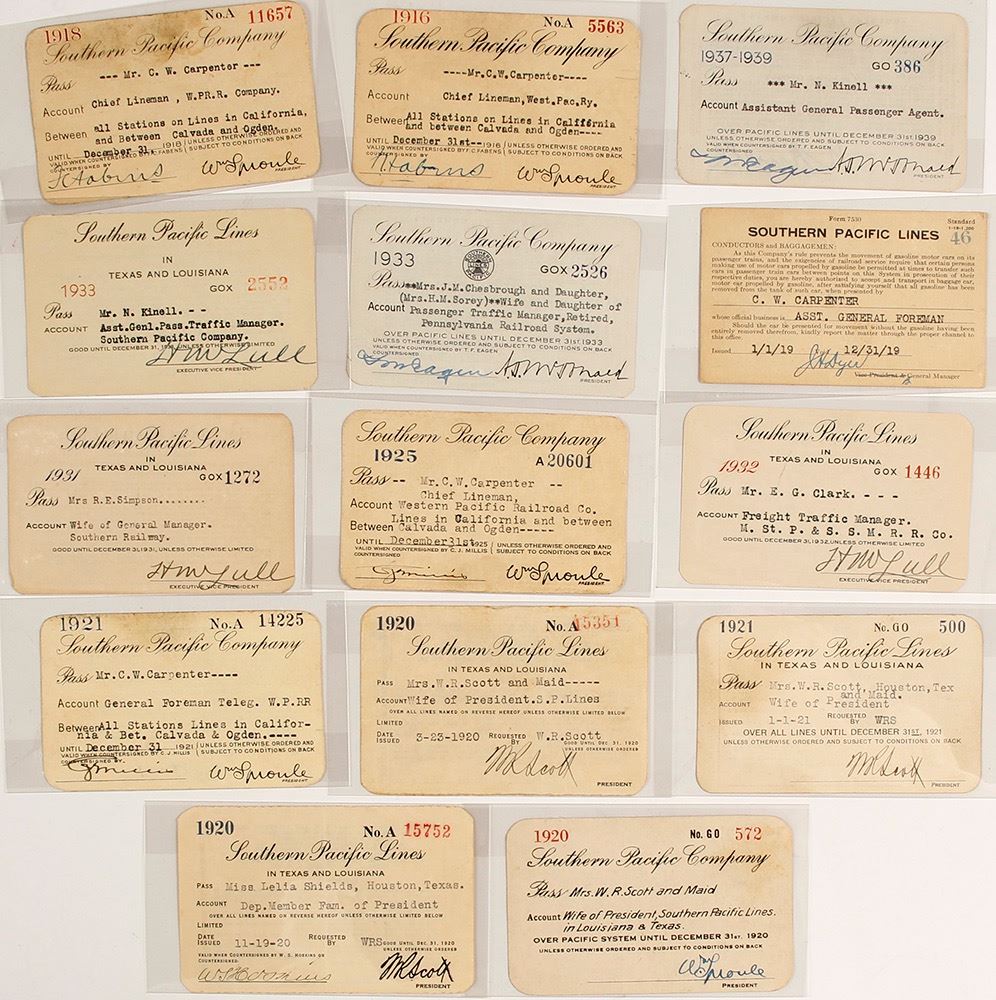 1918 No.A 11657
Southern Pacific Company
Pass --- Mr. C. W. Carpenter ---
Account Chief Lineman , W.PR.R. Company.
Between all Stations on Lines in California,
and Between Calvada and Ogden.
UNTIL December 31 1918 UNLESS OTHERWISE ORDERED AND
VALID WHEN COUNTERSIGNED BY F.C. FABENS SUBJECT TO CONDITIONS ON BACK
COUNTERSIGNED BY
FCFabens Wm Sproule
PRESIDENT
1916 No.A 5563
Southern Pacific Company
Pass ----Mr.C.W.Carpenter----
Account Chief Lineman,West.Pac.Ry.
Between All Stations on Lines in California
and between Calvada and Ogden----
UNTIL December 31st-- 1916 UNLESS OTHERWISE ORDERED AND
VALID WHEN COUNTERSIGNED BY F.C. FABENS SUBJECT TO CONDITIONS ON BACK
COUNTERSIGNED BY
FCFabens Wm Sproule
PRESIDENT
Southern Pacific Company
1937-1939 GO 386
Pass *** Mr. N. Kinell ***
Account Assistant General Passenger Agent.
OVER PACIFIC LINES UNTIL DECEMBER 31ST. 1939
UNLESS OTHERWISE ORDERED AND SUBJECT TO CONDITIONS ON BACK
VALID WHEN COUNTERSIGNED BY T.F. EAGEN
COUNTERSIGNED
A.D. McDonald
PRESIDENT
Southern Pacific Lines
IN
TEXAS AND LOUISIANA
1933 GOX 2552
Pass Mr. N. Kinell.- -
ACCOUNT Asst.Genl.Pass.Traffic Manager.
Southern Pacific Company.
GOOD UNTIL DECEMBER 31, UNLESS OTHERWISE LIMITED
HM Lull
EXECUTIVE VICE PRESIDENT
Southern Pacific Company
1933 GOX 2526
Pass **Mrs.J.M.Chesbrough and Daughter,
(Mrs.H.M.Sorey)**Wife and Daughter of
Account Passenger Traffic Manager,Retired,
Pennsylvania Railroad System.
OVER PACIFIC LINES UNTIL DECEMBER 31ST 1933
UNLESS OTHERWISE ORDERED AND SUBJECT TO CONDITIONS ON BACK
VALID WHEN COUNTERSIGNED BY T.F. EAGEN
COUNTERSIGNED
A.D. McDonald
PRESIDENT
Form 7530 Standard
SOUTHERN PACIFIC LINES 46
CONDUCTORS and BAGGAGEMEN:
As this Company's rule prevents the movement of gasoline motor cars on its
passenger trains, and the exigencies of railroad service require that certain persons
making use of motor cars propelled by gasoline be permitted at times to transfer such
cars in passenger train cars between points on this System in prosecution of their
respective duties, you are hereby authorized to accept and transport in baggage car,
motor car propelled by gasoline, after satisfying yourself that all gasoline has been
removed from the tank of such car, when presented by
C. W. CARPENTER
whose official business is ASST. GENERAL FOREMAN
Should the car be presented for movement without the gasoline having been
entirely removed therefrom, kindly report the matter through the proper channel to
this office.
Issued 1/1/19 12/31/19
Vice President & General Manager
Southern Pacific Lines
IN
TEXAS AND LOUISIANA
1931 GOX 1272
Pass Mrs R.E.Simpson.......
ACCOUNT Wife of General Manager.
Southern Railway.
GOOD UNTIL DECEMBER 31,1931, UNLESS OTHERWISE LIMITED
HM Lull
EXECUTIVE VICE PRESIDENT
Southern Pacific Company
1925 A 20601
Pass -- Mr.C.W.Carpenter --
Chief Lineman,
Account Western Pacific Railroad Co.
Lines in California and between
Between Calvada and Ogden-----
UNTIL December31st 1925 UNLESS OTHERWISE ORDERED AND
VALID WHEN COUNTERSIGNED BY C.J. MILLIS SUBJECT TO CONDITIONS ON BACK
COUNTERSIGNED
CJMillis Wm Sproule
PRESIDENT
Southern Pacific Lines
IN
TEXAS AND LOUISIANA
1932 GOX 1446
Pass Mr. E. G. Clark. - - -
ACCOUNT Freight Traffic Manager.
M. St. P. & S. S. M. R. R. Co.
GOOD UNTIL DECEMBER 31,1932,UNLESS OTHERWISE LIMITED
HM Lull
EXECUTIVE VICE PRESIDENT
1921 No.A 14225
Southern Pacific Company
Pass Mr.C.W.Carpenter----
Account General Foreman Teleg. W.P.RR
Between All Stations Lines in Califor-
nia & Bet. Calvada & Ogden.----
UNTIL December 31 1921 UNLESS OTHERWISE ORDERED AND
VALID WHEN COUNTERSIGNED BY C.J. MILLIS SUBJECT TO CONDITIONS ON BACK
COUNTERSIGNED BY.
CJMillis Wm Sproule
PRESIDENT
1920 No.A 15351
Southern Pacific Lines
IN TEXAS AND LOUISIANA
PASS Mrs.W.R.Scott and Maid-----
ACCOUNT Wife of President.S.P.Lines
OVER ALL LINES NAMED ON REVERSE HEREOF UNLESS OTHERWISE LIMITED BELOW
LIMITED
DATE ISSUED 3-23-1920 REQUESTED BY W.R.Scott
GOOD UNTIL DEC. 31, 1920
WRScott
PRESIDENT
1921 No. GO 500
Southern Pacific Lines
IN TEXAS AND LOUISIANA
Pass Mrs.W.R.Scott, Houston,Tex
and Maid.
ACCOUNT Wife of President
ISSUED 1-1-21 REQUESTED BY WRS
OVER ALL LINES UNTIL DECEMBER 31ST, 1921
UNLESS OTHERWISE ORDERED AND SUBJECT TO CONDITIONS ON BACK
WRScott
PRESIDENT
1920 No. A 15752
Southern Pacific Lines
IN TEXAS AND LOUISIANA
PASS Miss Lelia Shields, Houston,Texas.
ACCOUNT Dep.Member Fam. of President
OVER ALL LINES NAMED ON REVERSE HEREOF UNLESS OTHERWISE LIMITED BELOW
LIMITED
DATE ISSUED 11-19-20 REQUESTED BY WRS GOOD UNTIL DEC. 31, 1920
VALID WHEN COUNTERSIGNED BY W. S. HOSKINS OR
COUNTERSIGNED:
WSHoskins WRScott
PRESIDENT
1920 No. GO 572
Southern Pacific Company
Pass Mrs. W. R. Scott and Maid
Account Wife of President, Southern Pacific Lines.
in Louisiana & Texas.
OVER PACIFIC SYSTEM UNTIL DECEMBER 31ST. 1920
UNLESS OTHERWISE ORDERED AND SUBJECT TO CONDITIONS ON BACK
Wm Sproule
PRESIDENT